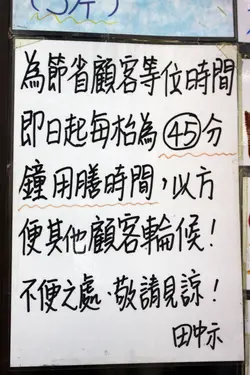 為節省顧客等位時間
即日起每枱為45分
鐘用膳時間，以方
便其他顧客輪候！
不便之處、敬請見諒！
田中示